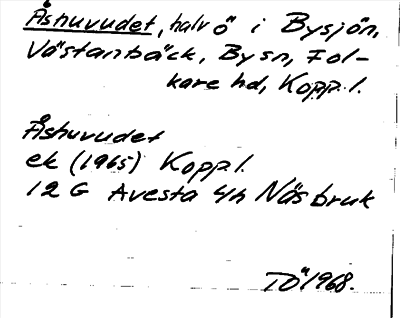 Åshuvudet, halvö i Bysjön,
Västanbäck, By sn, Fol-
kare hd, Koppl.
Åshuvudet
ek (1965) Koppl.
12 G Avesta 4h Näs bruk
TÖ 1968.